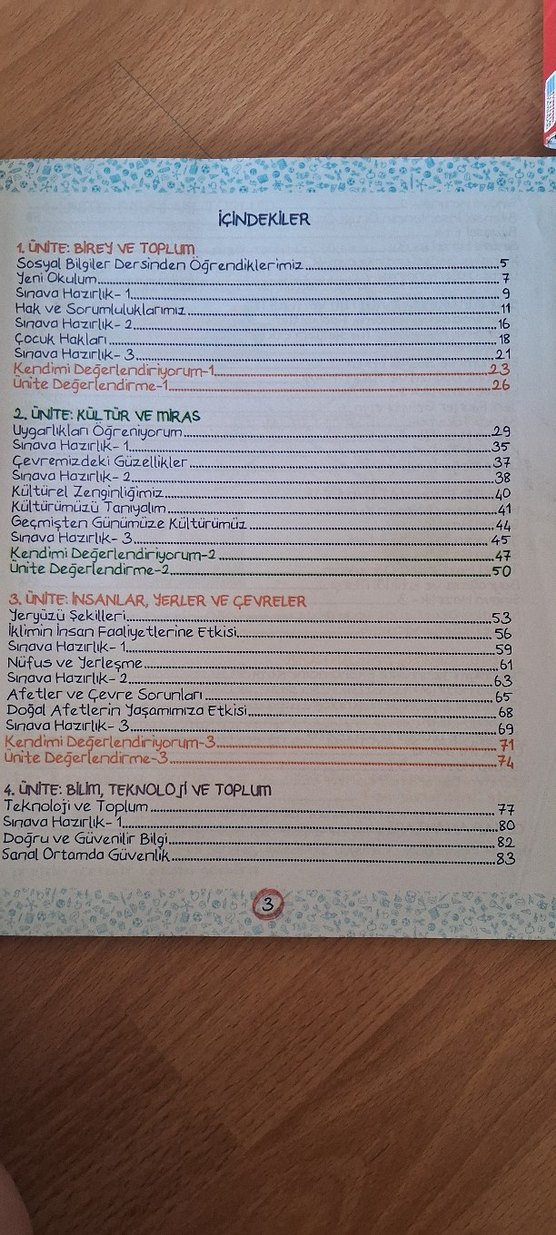 İÇİNDEKİLER
1. ÜNİTE: BİREY VE TOPLUM
Sosyal Bilgiler Dersinden Öğrendiklerimiz 5
Yeni Okulum 7
Sınava Hazırlık- 1 9
Hak ve Sorumluluklarımız 11
Sınava Hazırlık- 2 16
Çocuk Hakları 18
Sınava Hazırlık- 3 21
Kendimi Değerlendiriyorum-1 23
Ünite Değerlendirme-1 26
2. ÜNİTE: KÜLTÜR VE MİRAS
Uygarlıkları Öğreniyorum 29
Sınava Hazırlık- 1 35
Çevremizdeki Güzellikler 37
Sınava Hazırlık- 2 38
Kültürel Zenginliğimiz 40
Kültürümüzü Tanıyalım 41
Geçmişten Günümüze Kültürümüz 44
Sınava Hazırlık- 3 45
Kendimi Değerlendiriyorum-2 47
Ünite Değerlendirme-2 50
3. ÜNİTE: İNSANLAR, YERLER VE ÇEVRELER
Yeryüzü Şekilleri 53
İklimin İnsan Faaliyetlerine Etkisi 56
Sınava Hazırlık- 1 59
Nüfus ve Yerleşme 61
Sınava Hazırlık- 2 63
Afetler ve Çevre Sorunları 65
Doğal Afetlerin Yaşamımıza Etkisi 68
Sınava Hazırlık- 3 69
Kendimi Değerlendiriyorum-3 71
Ünite Değerlendirme-3 74
4. ÜNİTE: BİLİM, TEKNOLOJİ VE TOPLUM
Teknoloji ve Toplum 77
Sınava Hazırlık- 1 80
Doğru ve Güvenilir Bilgi 82
Sanal Ortamda Güvenlik 83
3